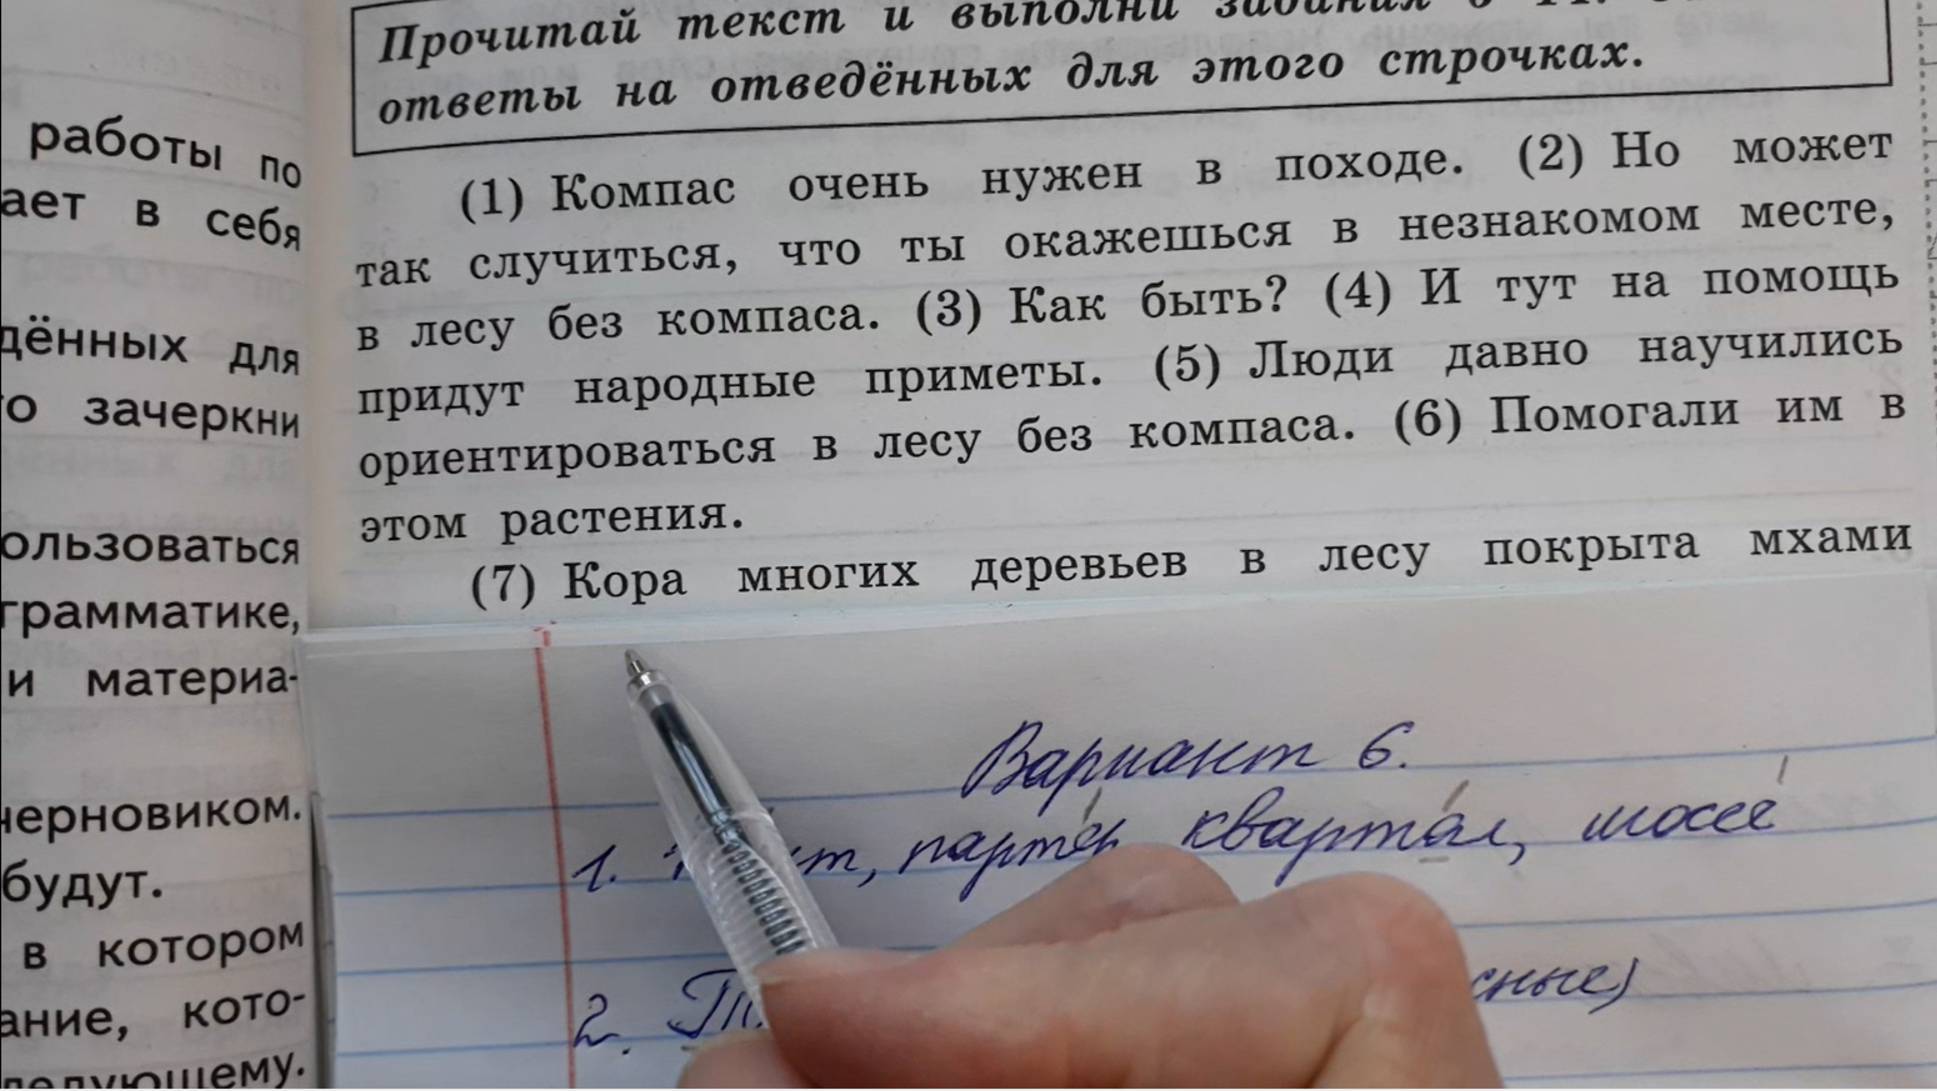 Прочитай текст и выполни задания
ответы на отведённых для этого строчках.
работы по
ает в себя
дённых для
о зачеркни
ользоваться
грамматике,
и материа-
черновиком.
будут.
в котором
ание, кото-
ледующему.
(1) Компас очень нужен в походе. (2) Но может
так случиться, что ты окажешься в незнакомом месте,
в лесу без компаса. (3) Как быть? (4) И тут на помощь
придут народные приметы. (5) Люди давно научились
ориентироваться в лесу без компаса. (6) Помогали им в
этом растения.
(7) Кора многих деревьев в лесу покрыта мхами
Вариант 6.
1. партер квартал, шоссе
2. сные)